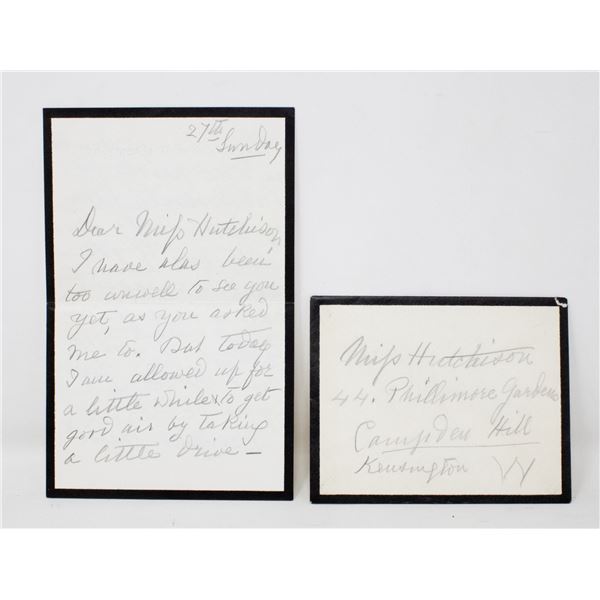 27th
Sunday
Dear Miss Hutchison
I have alas been
too unwell to see you
yet, as you asked
me to. But today
I am allowed up for
a little while & to get
good air by taking
a little drive —
Miss Hutchison
44. Phillimore Gardens
Campden Hill
Kensington W